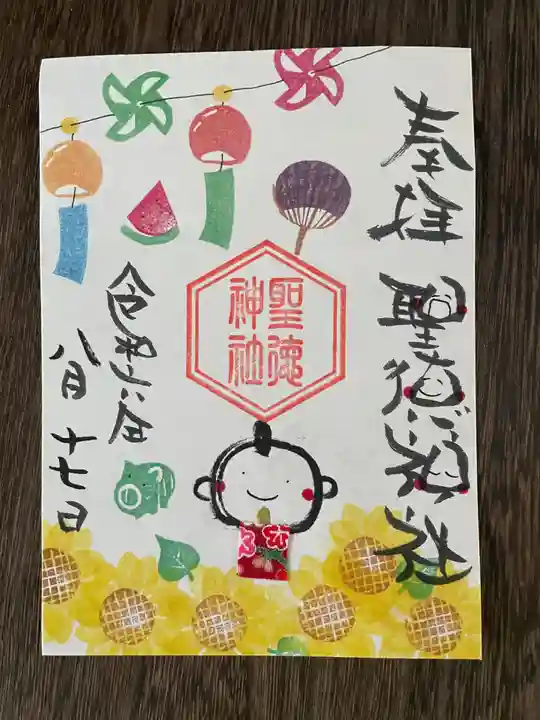 奉拝
聖徳神社
聖徳
神社
令和六年
八月十七日